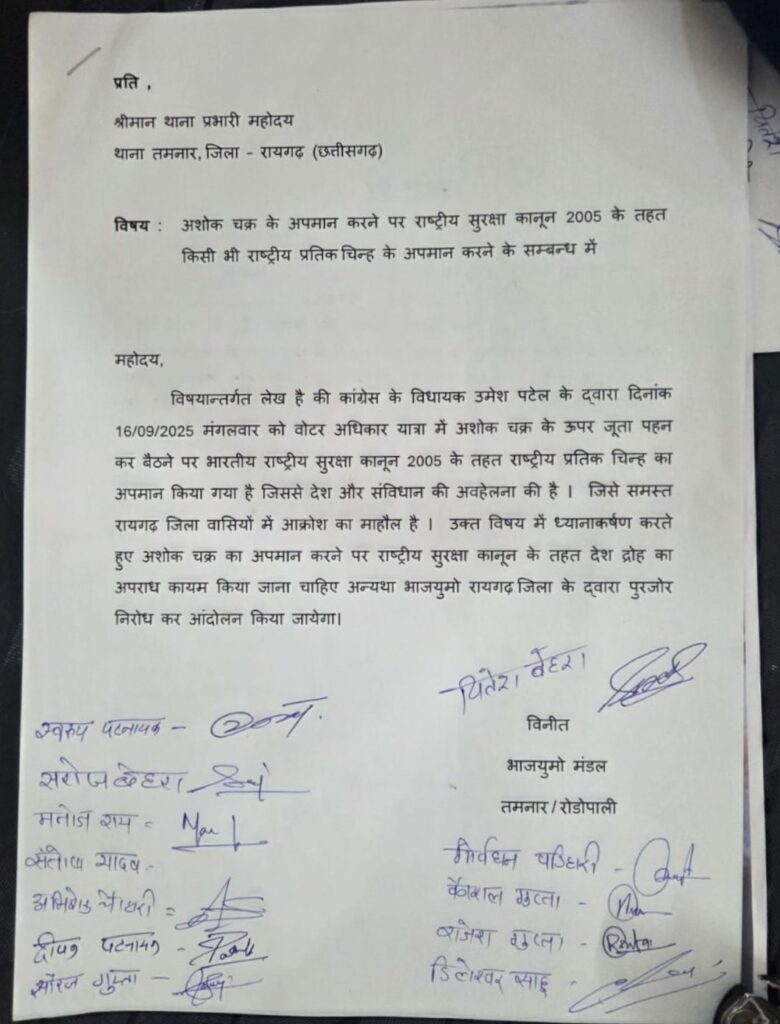 प्रति ,
श्रीमान थाना प्रभारी महोदय
थाना तमनार, जिला - रायगढ़ (छत्तीसगढ़)
विषय : अशोक चक्र के अपमान करने पर राष्ट्रीय सुरक्षा कानून 2005 के तहत
किसी भी राष्ट्रीय प्रतिक चिन्ह के अपमान करने के सम्बन्ध में
महोदय,
विषयान्तर्गत लेख है की कांग्रेस के विधायक उमेश पटेल के द्वारा दिनांक
16/09/2025 मंगलवार को वोटर अधिकार यात्रा में अशोक चक्र के ऊपर जूता पहन
कर बैठने पर भारतीय राष्ट्रीय सुरक्षा कानून 2005 के तहत राष्ट्रीय प्रतिक चिन्ह का
अपमान किया गया है जिससे देश और संविधान की अवहेलना की है । जिसे समस्त
रायगढ़ जिला वासियों में आक्रोश का माहौल है । उक्त विषय में ध्यानाकर्षण करते
हुए अशोक चक्र का अपमान करने पर राष्ट्रीय सुरक्षा कानून के तहत देश द्रोह का
अपराध कायम किया जाना चाहिए अन्यथा भाजयुमो रायगढ़ जिला के द्वारा पुरजोर
निरोध कर आंदोलन किया जायेगा।
बेहरा
विनीत
भाजयुमो मंडल
तमनार / रोडोपाली
स्वरुप पटनायक -
सरोज बेहरा
मनोज राय =
संतोष यादव -
अभिषेक चौधरी =
दीपक पटनायक -
सौरभ गुप्ता -
गोर्वधन -
कौशल गुप्ता -
राजेश गुप्ता -
डिलेश्वर साहू -